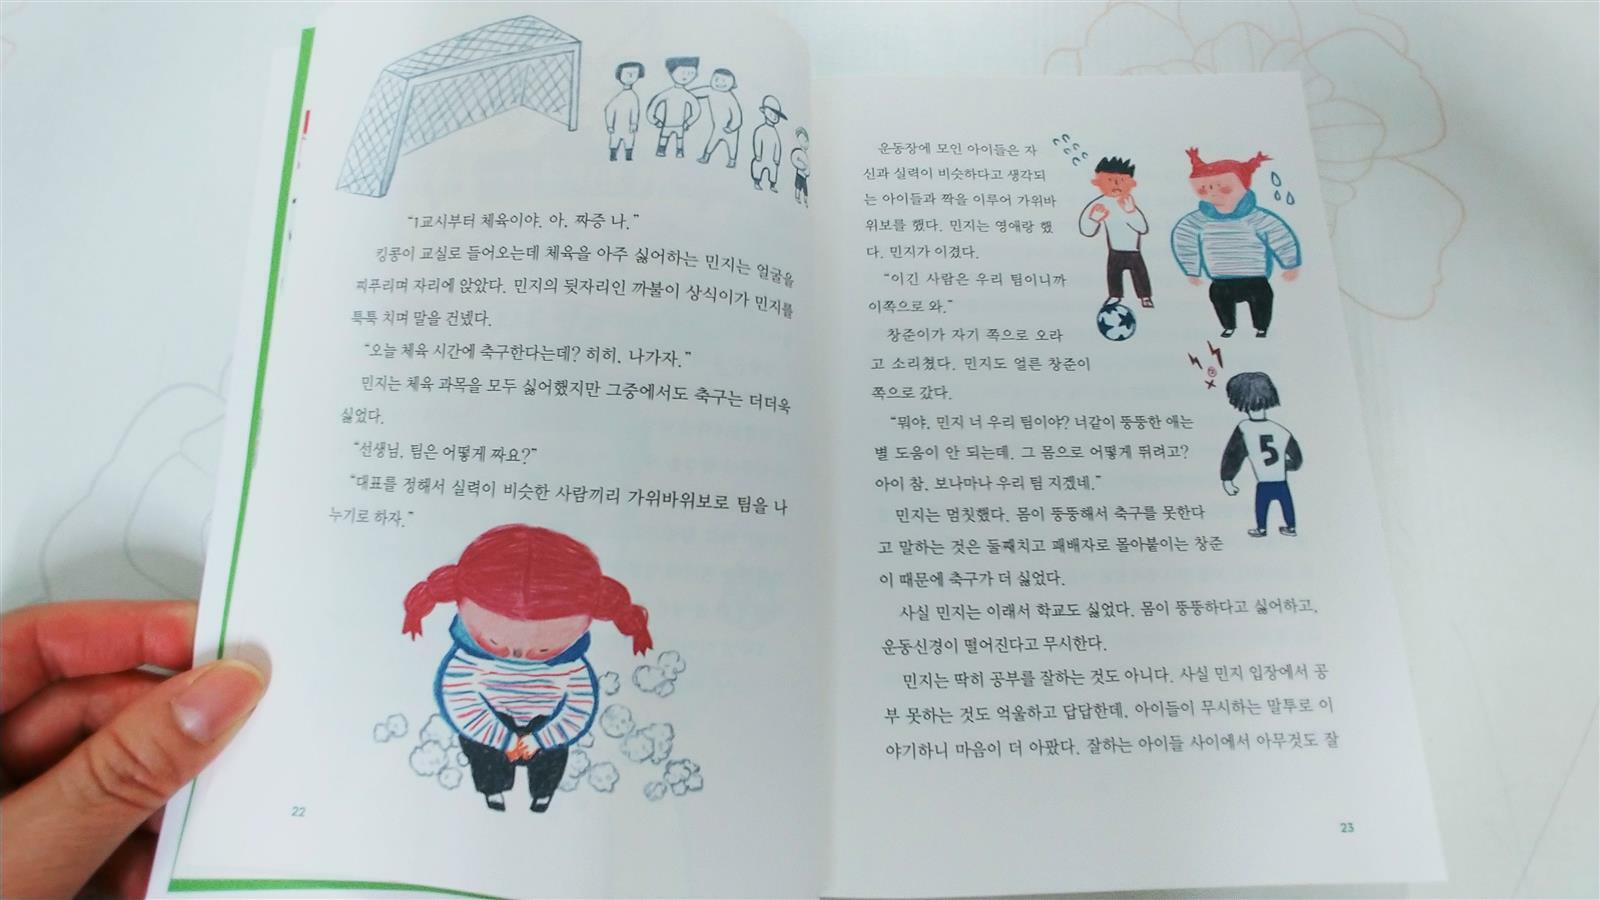 “1교시부터 체육이야. 아, 짜증 나.”
킹콩이 교실로 들어오는데 체육을 아주 싫어하는 민지는 얼굴을
찌푸리며 자리에 앉았다. 민지의 뒷자리인 까불이 상식이가 민지를
툭툭 치며 말을 건넸다.
“오늘 체육 시간에 축구한다는데? 히히, 나가자.”
민지는 체육 과목을 모두 싫어했지만 그중에서도 축구는 더더욱
싫었다.
“선생님, 팀은 어떻게 짜요?”
“대표를 정해서 실력이 비슷한 사람끼리 가위바위보로 팀을 나
누기로 하자.”
22
운동장에 모인 아이들은 자
신과 실력이 비슷하다고 생각되
는 아이들과 짝을 이루어 가위바
위보를 했다. 민지는 영애랑 했
다. 민지가 이겼다.
“이긴 사람은 우리 팀이니까
이쪽으로 와.”
창준이가 자기 쪽으로 오라
고 소리쳤다. 민지도 얼른 창준이
쪽으로 갔다.
“뭐야, 민지 너 우리 팀이야? 너같이 뚱뚱한 애는
별 도움이 안 되는데. 그 몸으로 어떻게 뛰려고?
아이 참, 보나마나 우리 팀 지겠네.”
민지는 멈칫했다. 몸이 뚱뚱해서 축구를 못한다
고 말하는 것은 둘째치고 패배자로 몰아붙이는 창준
이 때문에 축구가 더 싫었다.
사실 민지는 이래서 학교도 싫었다. 몸이 뚱뚱하다고 싫어하고,
운동신경이 떨어진다고 무시한다.
민지는 딱히 공부를 잘하는 것도 아니다. 사실 민지 입장에서 공
부 못하는 것도 억울하고 답답한데, 아이들이 무시하는 말투로 이
야기하니 마음이 더 아팠다. 잘하는 아이들 사이에서 아무것도 잘
5
23